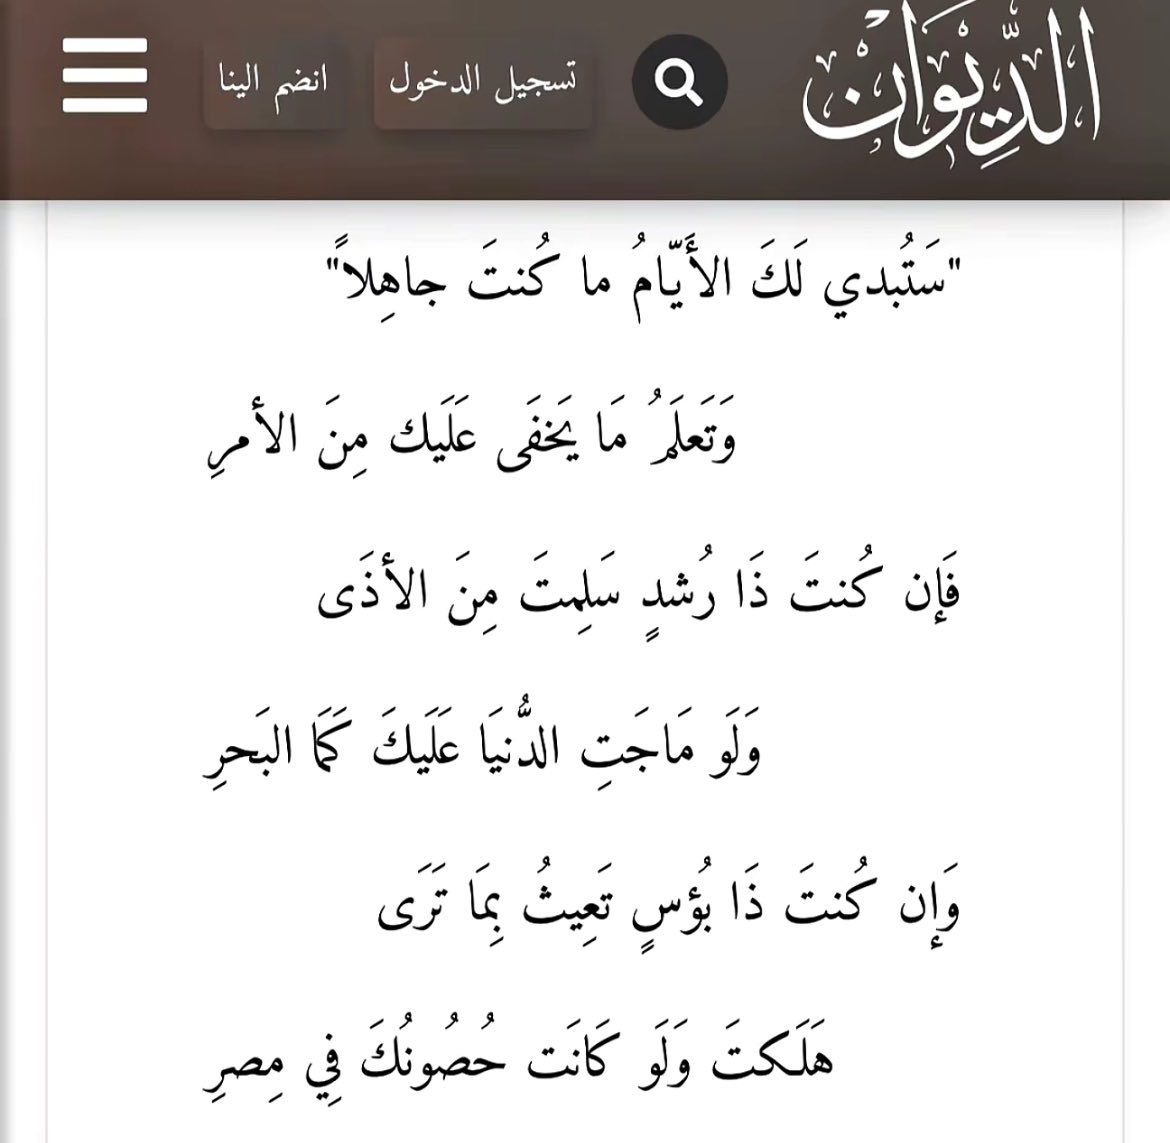 الدِّيوَانْ
تسجيل الدخول
انضم الينا
"سَتُبدي لَكَ الأَيّامُ ما كُنتَ جاهِلاً"
وَتَعلَمُ مَا يَخفَى عَلَيك مِنَ الأمرِ
فَإِن كُنتَ ذَا رُشدٍ سَلِمتَ مِنَ الأذَى
وَلَو مَاجَتِ الدُّنيَا عَلَيكَ كَمَا البَحرِ
وَإِن كُنتَ ذَا بُؤسٍ تَعِيثُ بِمَا تَرَى
هَلَكتَ وَلَو كَانَت حُصُونُكَ فِي مِصرِ